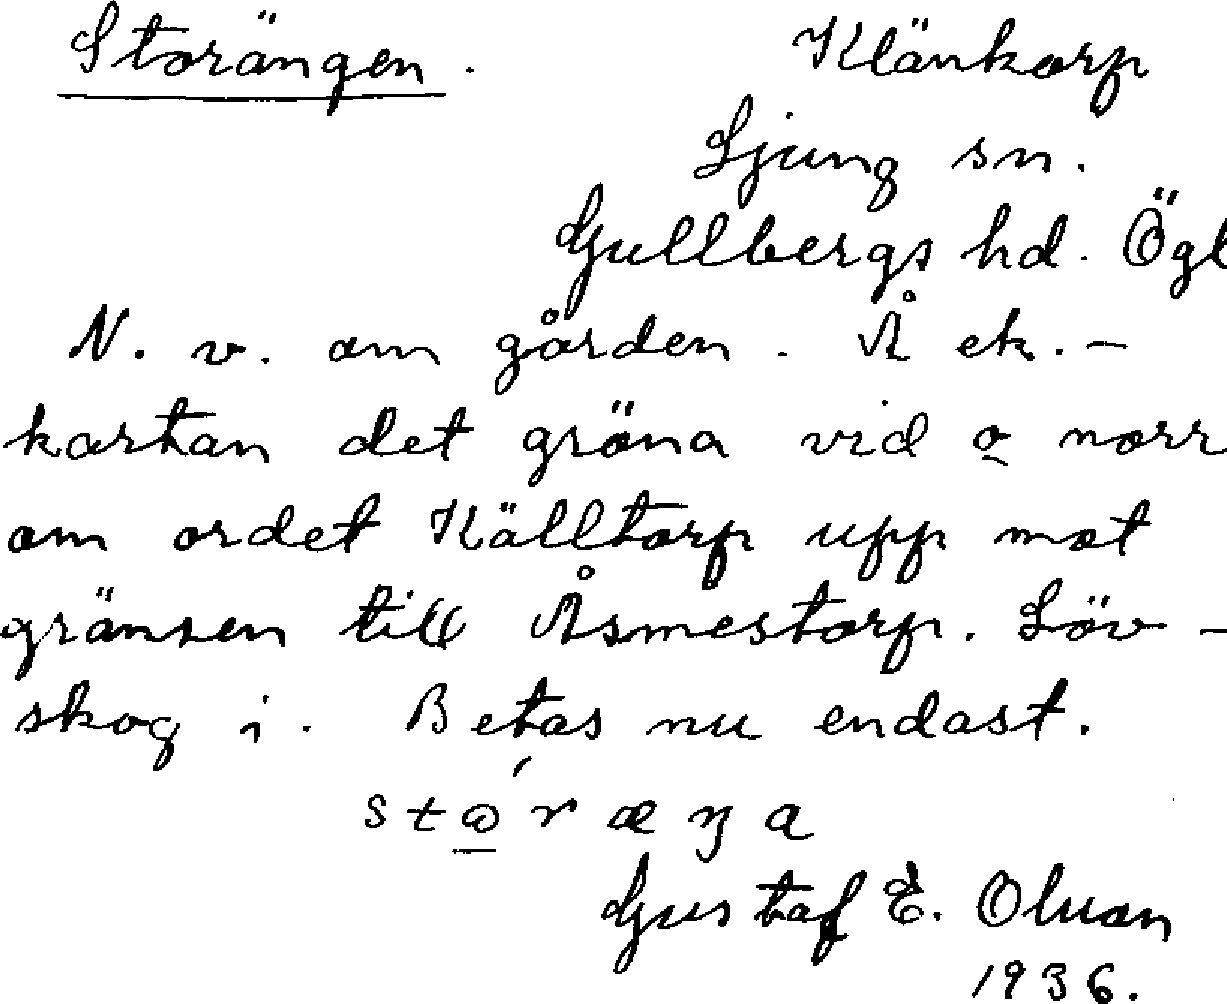 Storängen. Klänkorp
Ljung sn.
Gullbergs hd. Ögl
N. v. om gården. Å ek.-
kartan det gröna vid o norr
om ordet Källtorp upp mot
gränsen till Åsmestorp. Löv-
skog i. Betas nu endast.
Gustaf E. Olson
1936.